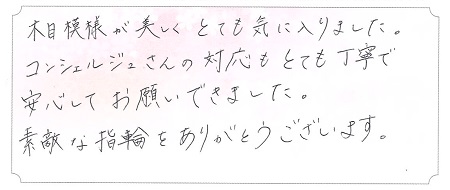 木目模様が美しくとても気に入りました。
コンシェルジュさんの対応もとても丁寧で
安心してお願いできました。
素敵な指輪をありがとうございます。